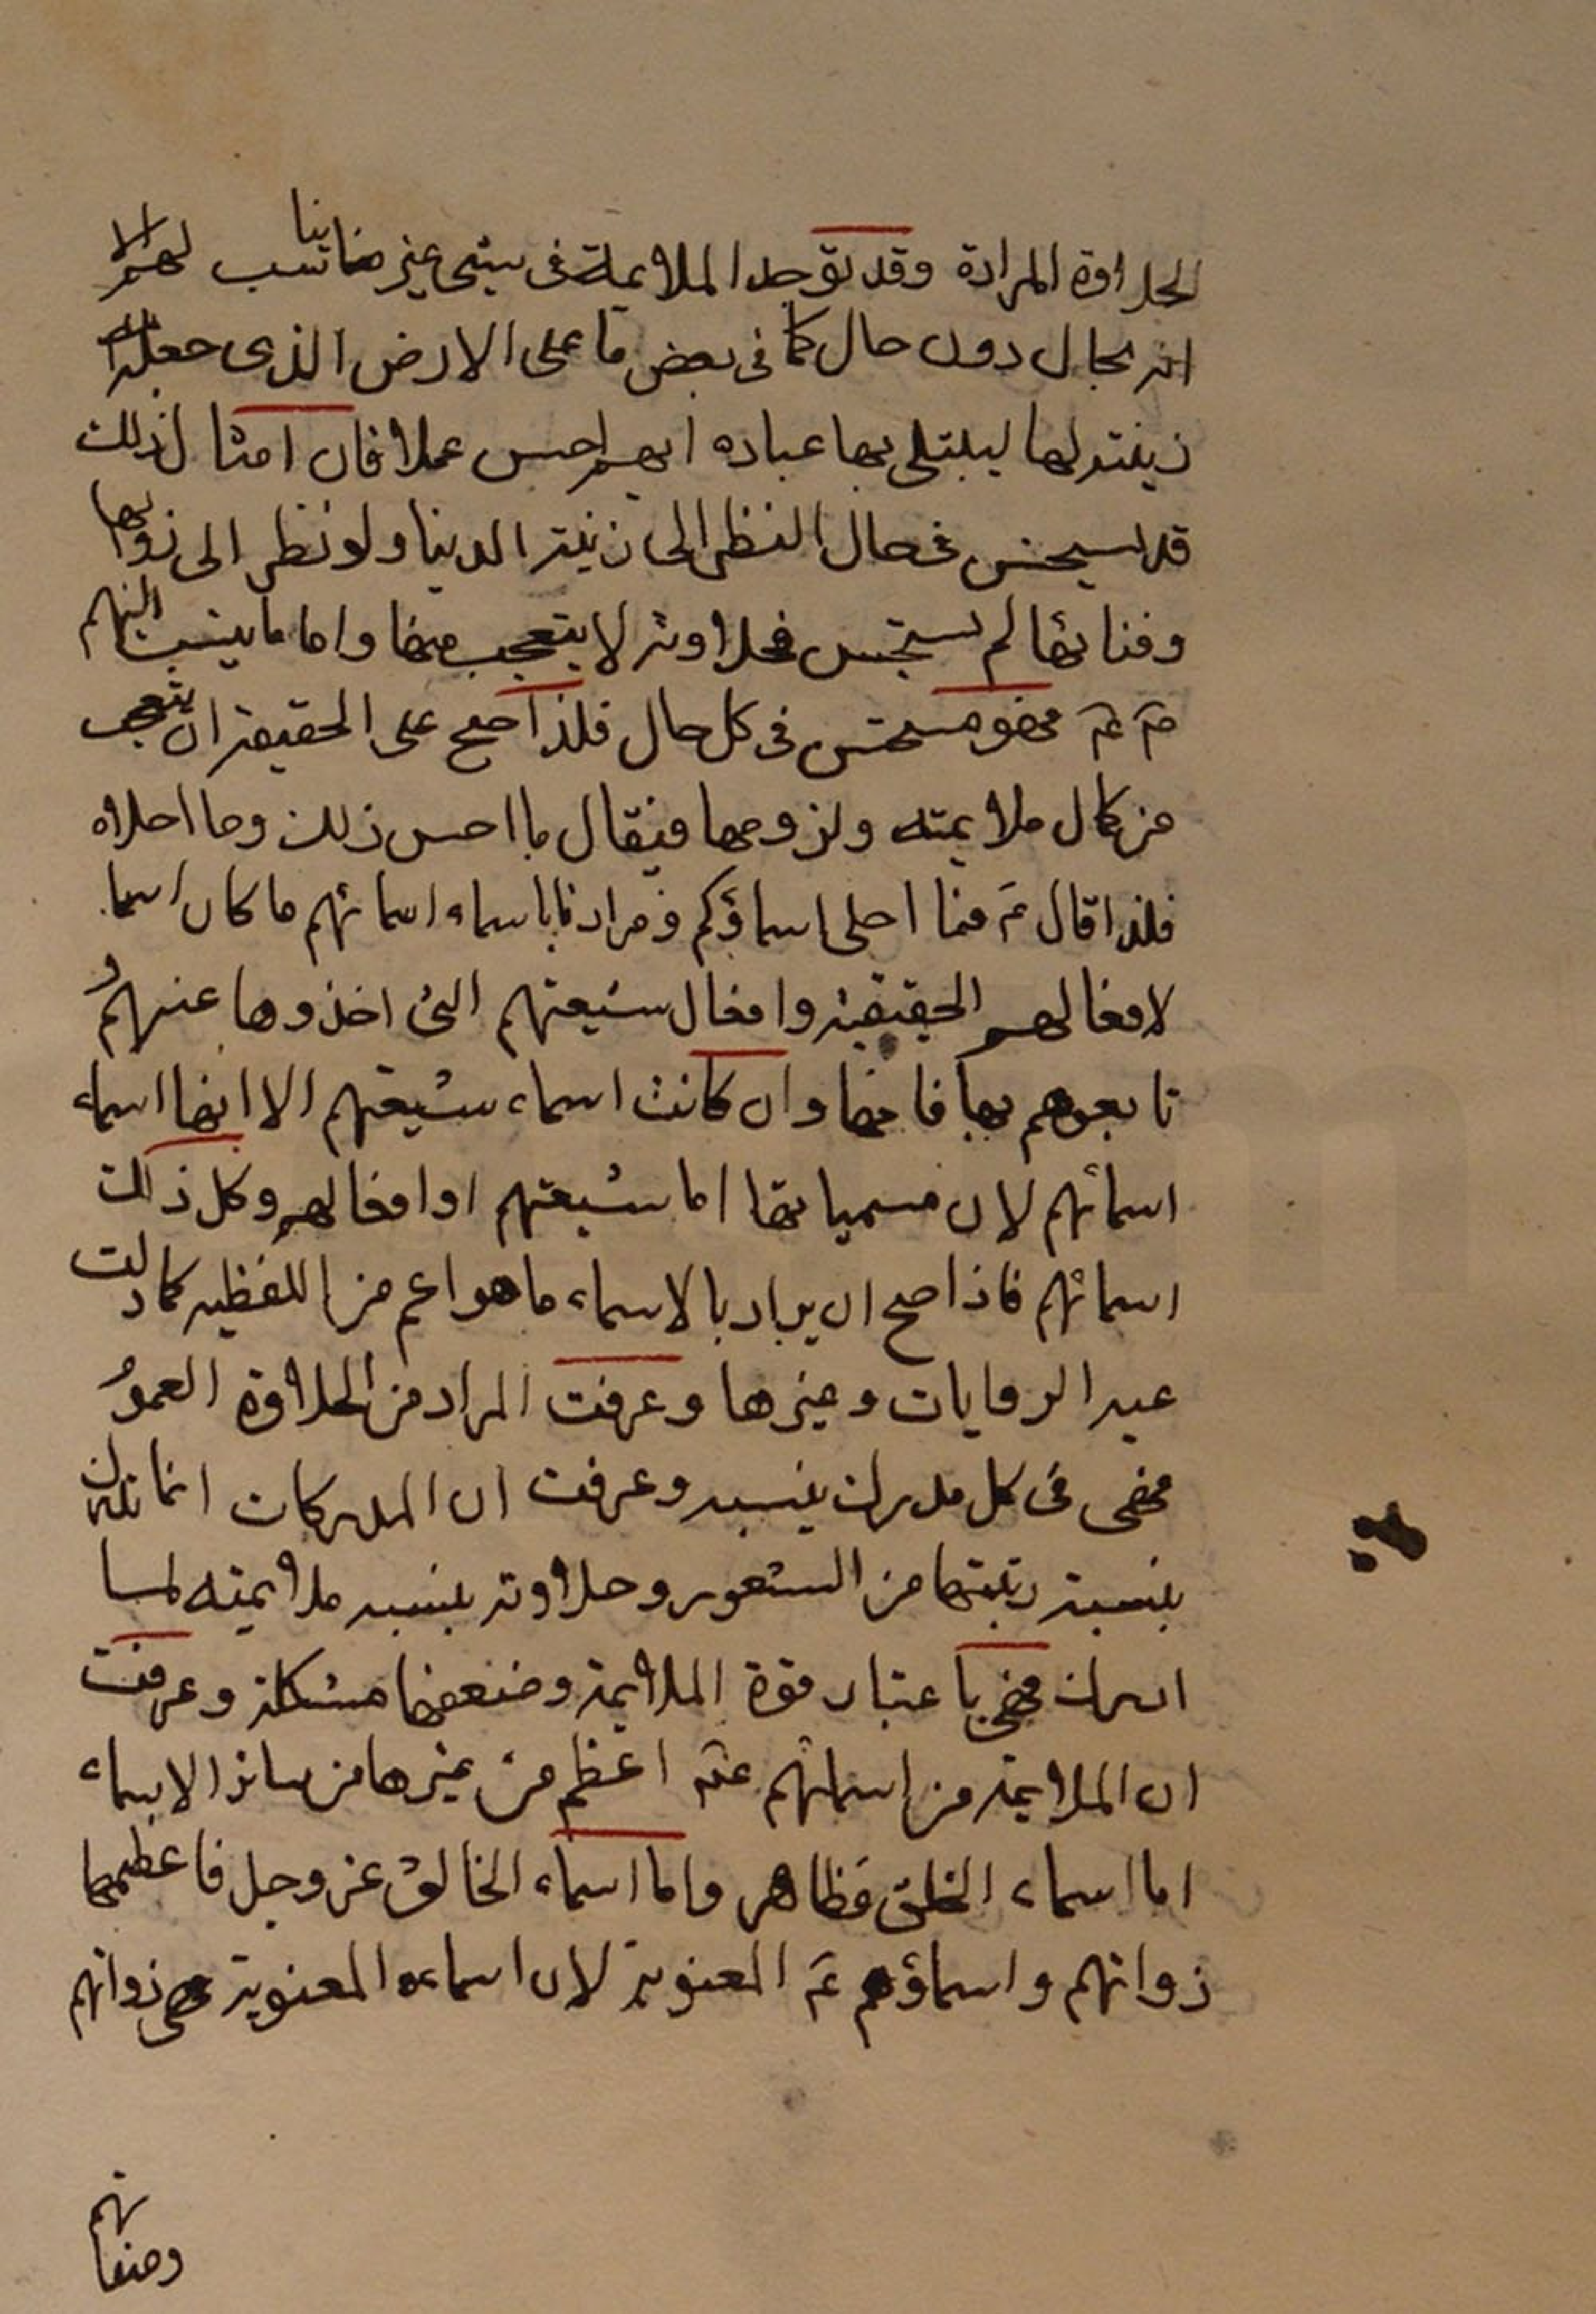 الحلاوة المرادة وقد توجد الملايمة فى شىء غير مناسب لهم الا
انه بحال دون حال كما فى بعض ما على الارض الذى جعله الله
زينة لها ليبتلى بها عباده ايهم احسن عملا فان امثال ذلك
قد يستحسن فى حال النظر الى زينة الدنيا ولو نظر الى زوالها
وفنائها لم يستحسن فحلاوته لا يتعجب منها واما ما ينسب اليهم
فهو مستحسن فى كل حال فلذا صح على الحقيقة ان يتعجب
من كمال ملايمته ولزومها فيقال ما احسن ذلك وما احلاه
فلذا قال ع فما احلى اسماؤكم ومرادنا باسماء اسمائهم ما كان اسما
لافعالهم الحقيقية وافعال شيعتهم التى اخذوها عنهم و
تابعوهم بها فانها وان كانت اسماء شيعتهم الا انها اسماء
اسمائهم لان مسمياتها اما شيعتهم او افعالهم وكل ذلك
اسمائهم فاذا صح ان يراد بالاسماء ما هو اعم من اللفظيه كما دلت
عليه الروايات وغيرها وعرفت المراد من الحلاوة العموم
فهى فى كل مدرك بنسبه وعرفت ان المدركات انما تدرك
بنسبة رتبتها من الشعور وحلاوته بنسبه ملايمته لمسا
ادراك فهى باعتبار قوة الملايمة وضعفها مشككة وعرفت
ان الملايمة من اسمائهم ع اعظم من غيرها من سائر الاسماء
اما اسماء الخلق فظاهر واما اسماء الخالق عز وجل فاعظمها
ذواتهم واسماؤهم ع المعنوية لان اسماءه المعنوية هى ذواتهم
وصفاتهم